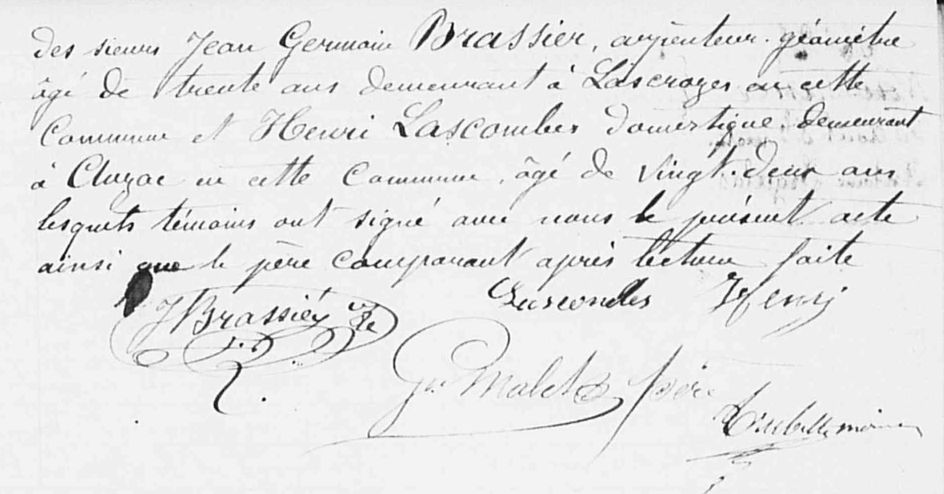 des sieurs Jean Germain Brassier, arpenteur-géomètre
âgé de trente ans demeurant à Lascrozes en cette
Commune et Henri Lascombes domestique demeurant
à Cluzac en cette Commune, âgé de vingt-deux ans
lesquels témoins ont signé avec nous le présent acte
ainsi que le père comparant après lecture faite
JBrassier Lascombes Henri
Malet père